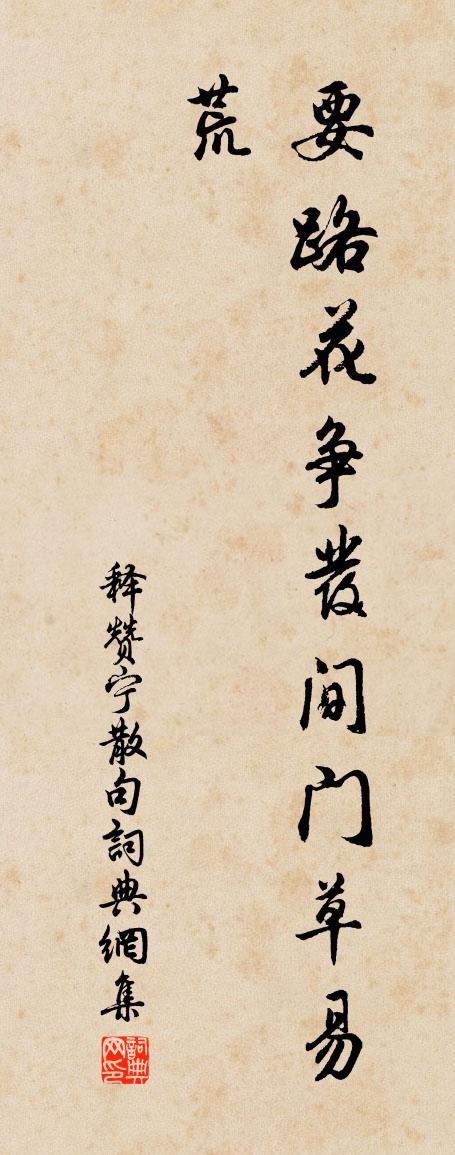 要路花争發間门草易
荒
释赞宁散句詞典網集
詞典网印